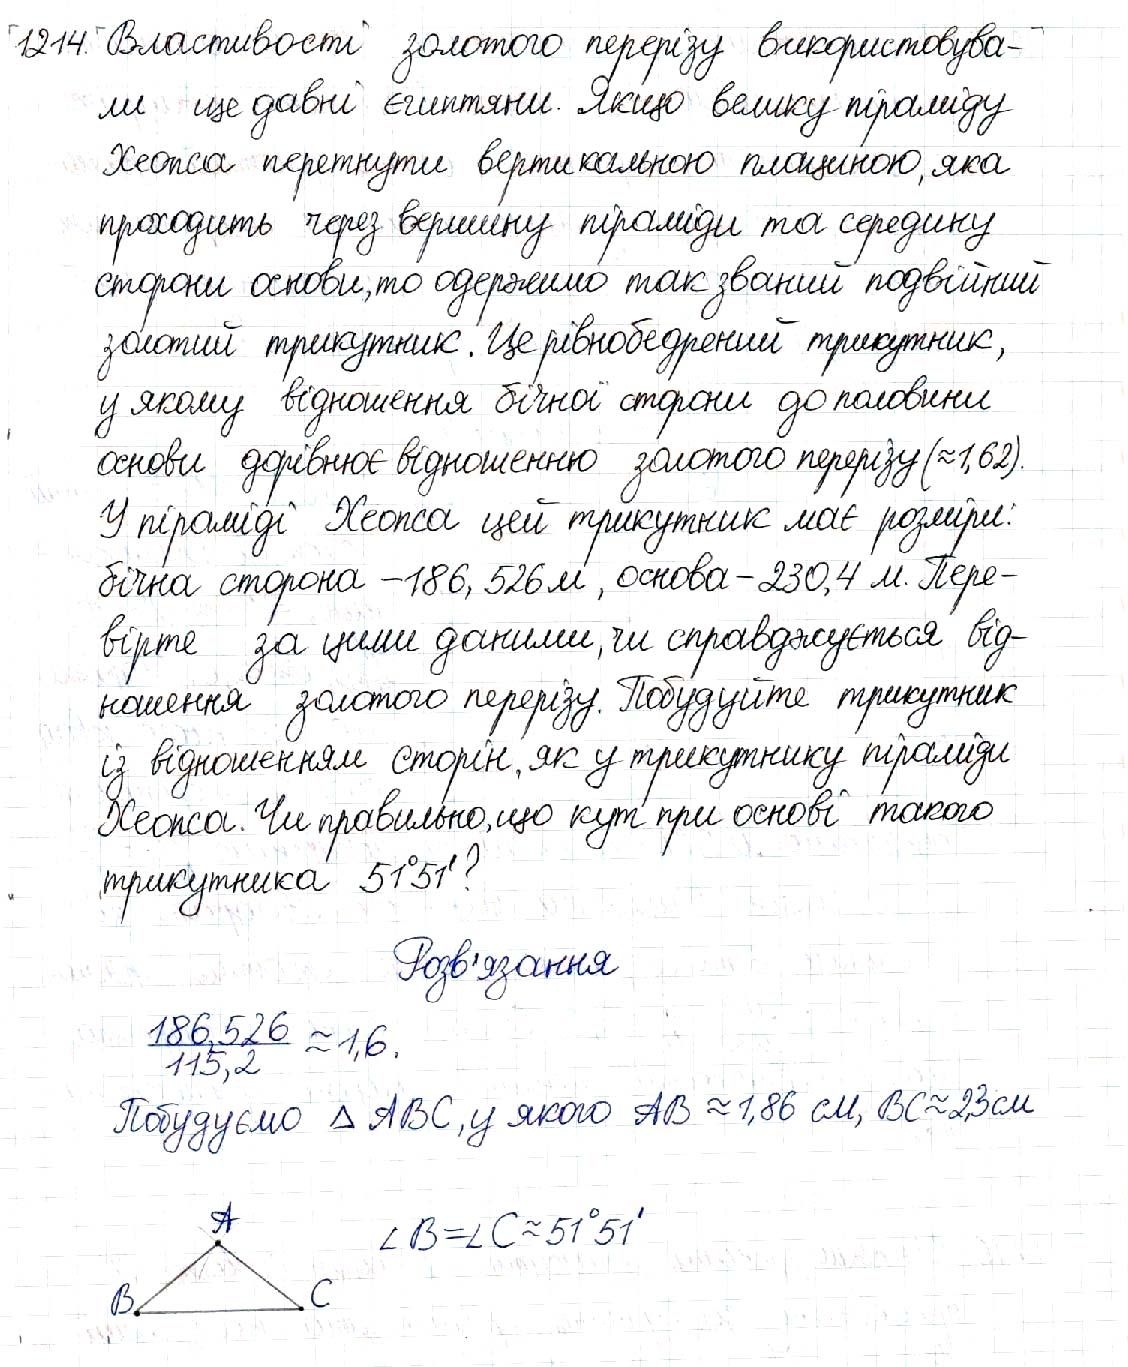 1214. Властивості золотого перерізу використовува-
ли ще давні єгиптяни. Якщо велику піраміду
Хеопса перетнути вертикальною площиною, яка
проходить через вершину піраміди та середину
сторони основи, то одержимо так званий подвійний
золотий трикутник. Це рівнобедрений трикутник,
у якому відношення бічної сторони до половини
основи дорівнює відношенню золотого перерізу (≈1,62).
У піраміді Хеопса цей трикутник має розміри:
бічна сторона – 186,526 м, основа – 230,4 м. Пере-
вірте за цими даними, чи справджується від-
ношення золотого перерізу. Побудуйте трикутник
із відношенням сторін, як у трикутнику піраміди
Хеопса. Чи правильно, що кут при основі такого
трикутника 51°51'?
Розв'язання
186,526
115,2 ≈ 1,6.
Побудуємо △ ABC, у якого AB ≈ 1,86 см, BC ≈ 2,3 см
A
∠B = ∠C ≈ 51°51'
B C